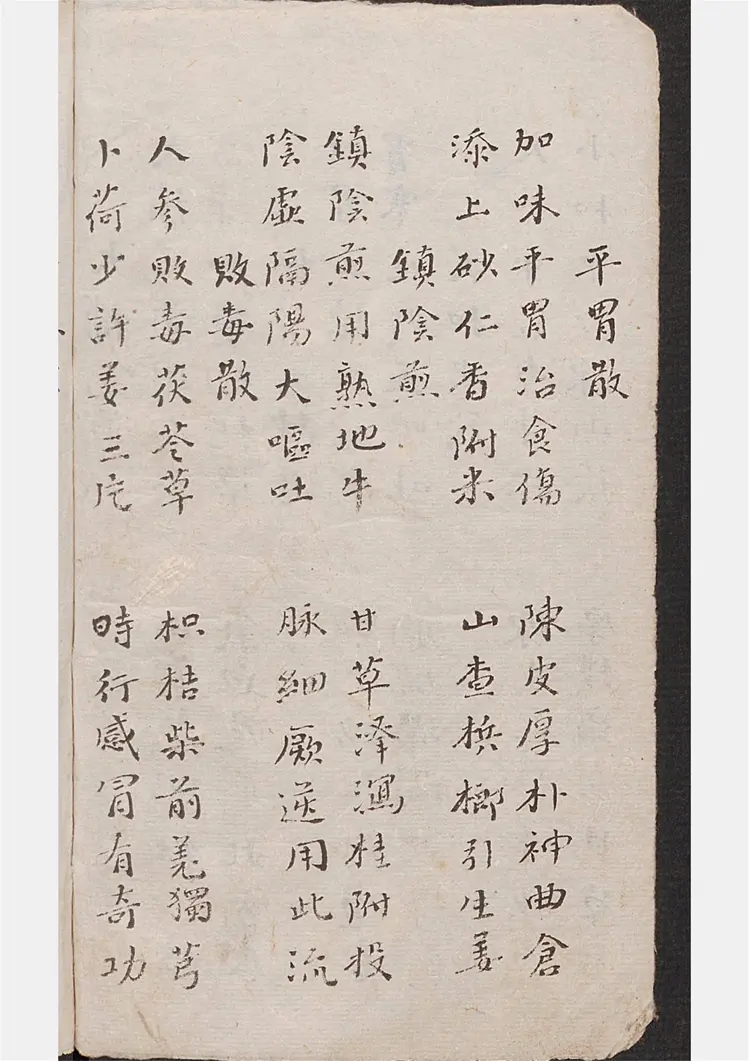 平胃散
加味平胃治食傷 陳皮厚朴神曲倉
添上砂仁香附米 山查梹榔引生姜
鎮陰煎
鎮陰煎用熟地牛 甘草澤瀉桂附投
陰虛隔陽大嘔吐 脉細厥逆用此流
敗毒散
人參敗毒茯苓草 枳桔柴前羗獨芎
卜荷少許姜三片 時行感冒有奇功